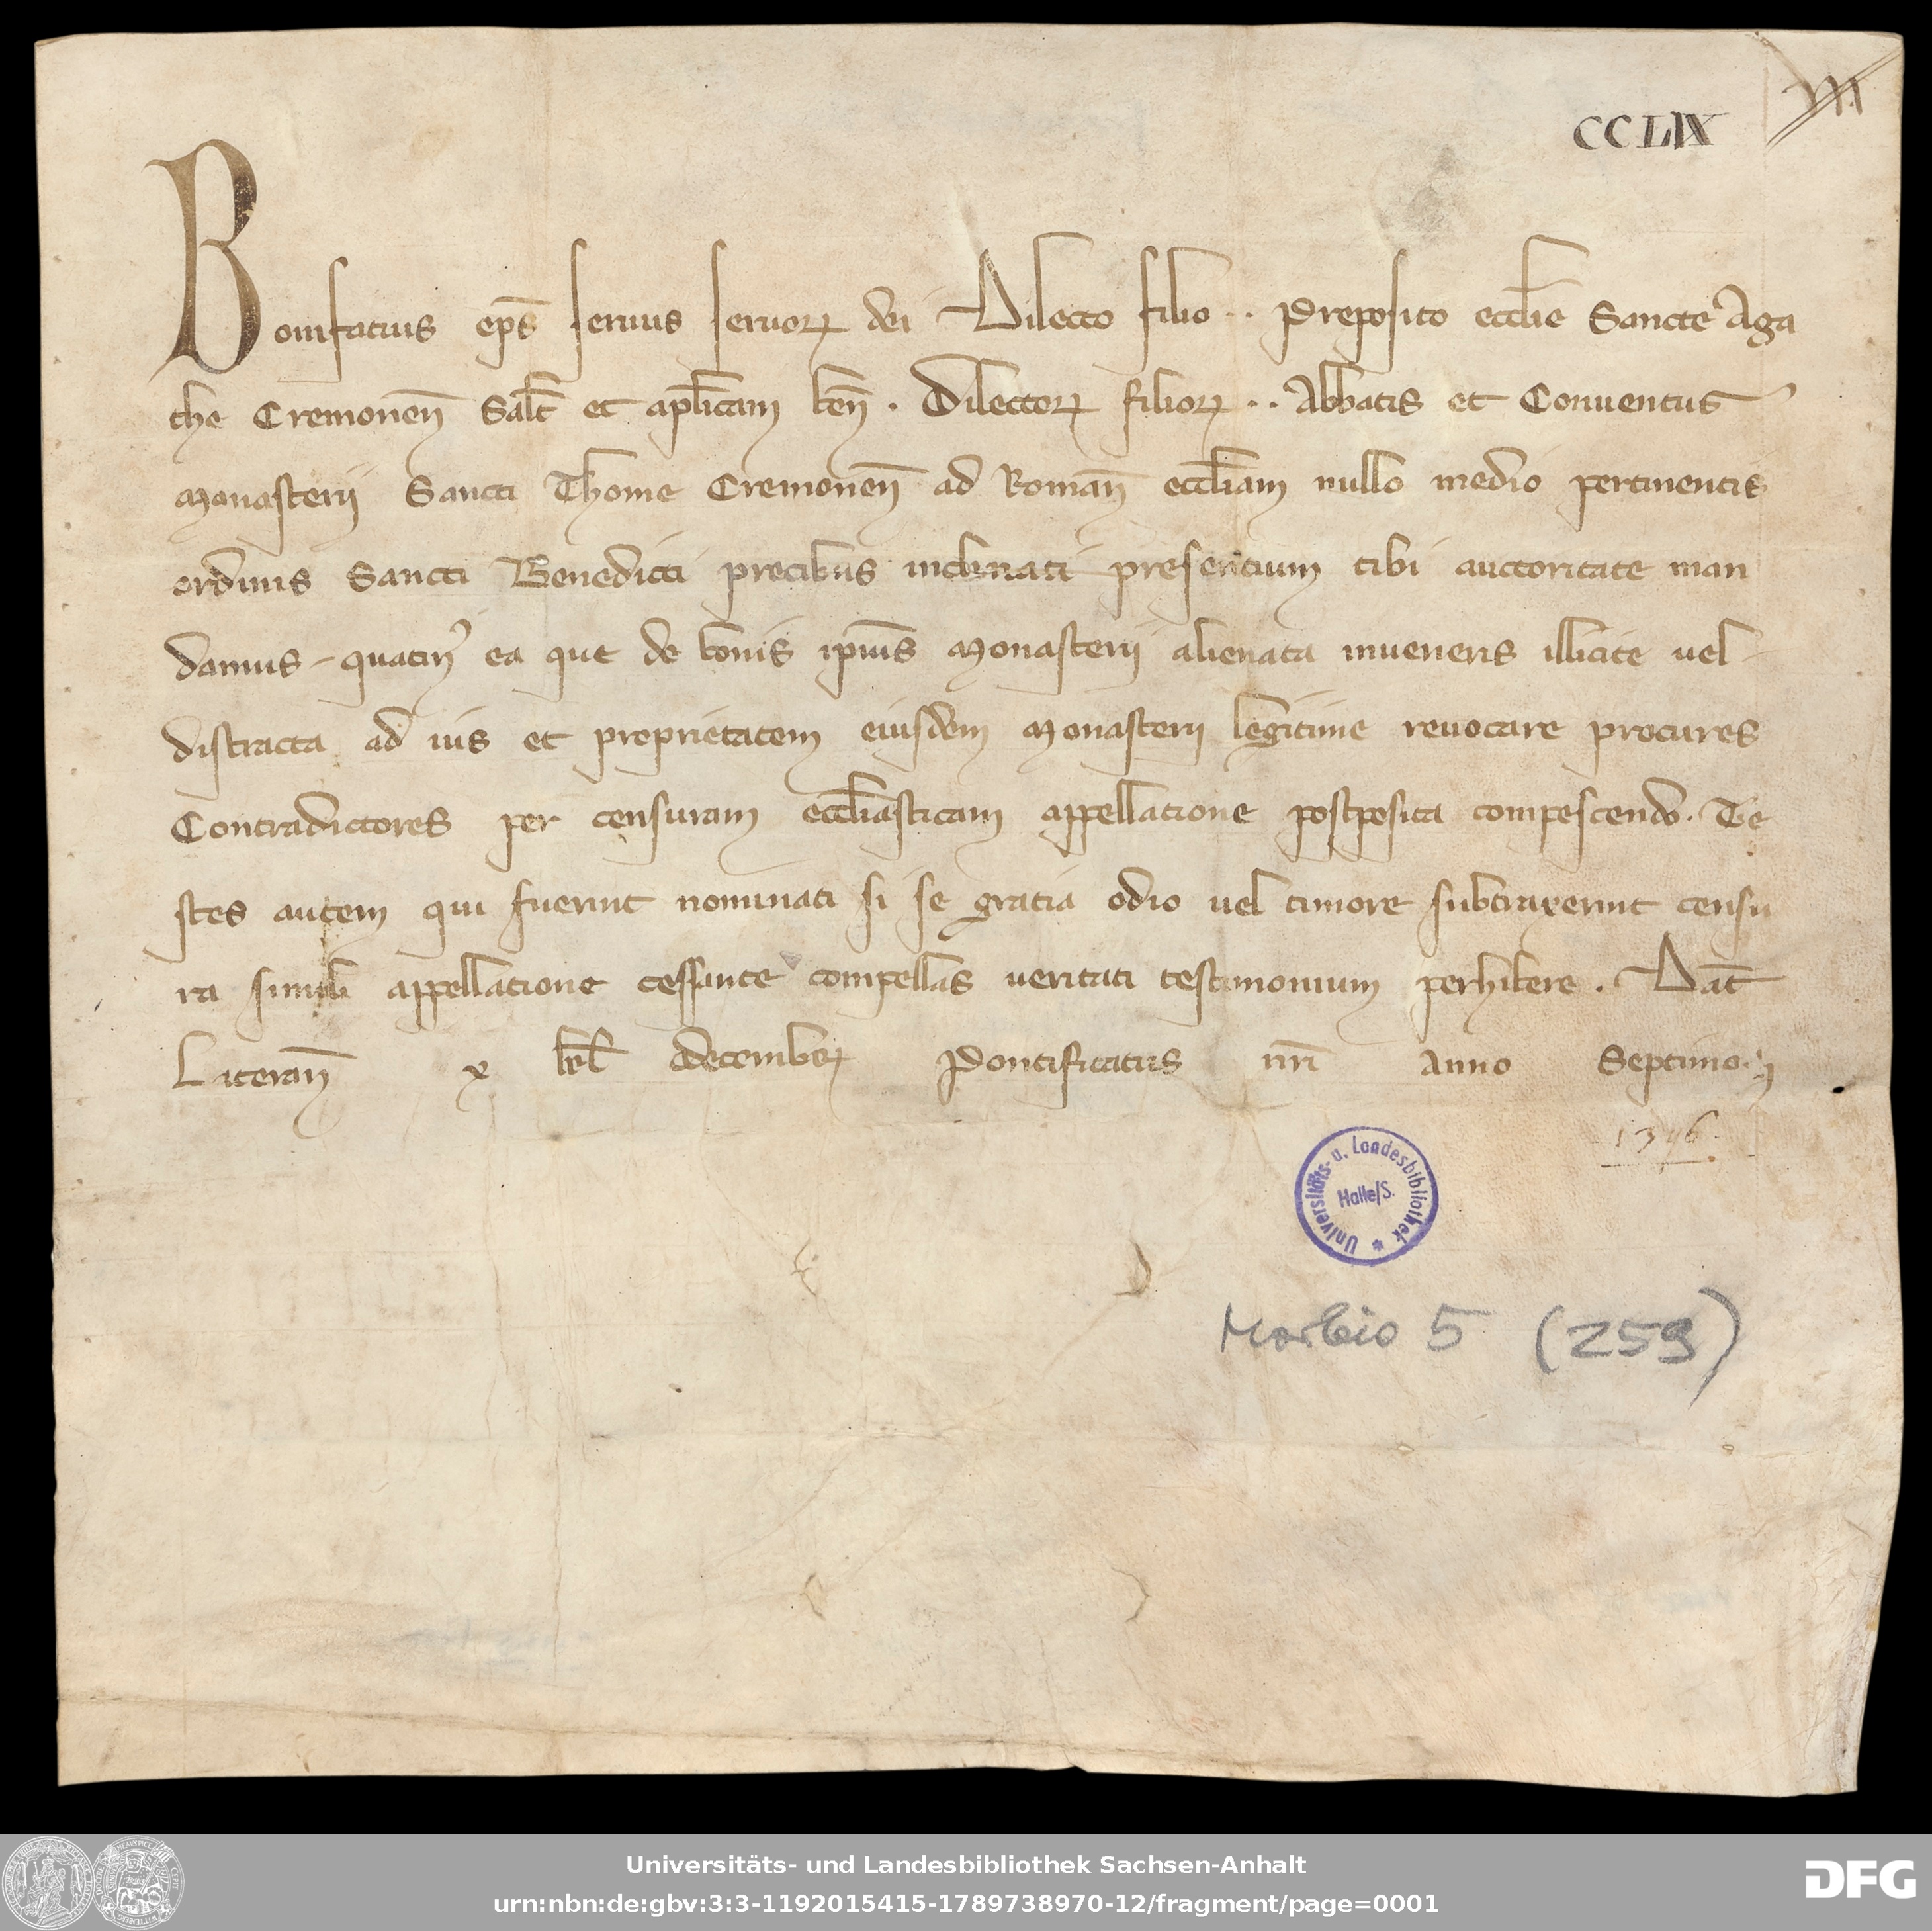 CCLIX
Bonifatius ep̄s seruus seruoꝝ dei Dilecto filio ·· Preposito ecclīe Sancte Aga
the Cremonen̄ Salt̄ et apl̄icam ben̄ . Dilectoꝝ filioꝝ ·· Abbatis et Conuentus
Monasterii Sancti Thome Cremonen̄ ad Roman̄ eccl̄iam nullo medio pertinentis
ordinis Sancti Benedicti precibus inclinati presentium tibi auctoritate man
damus quatin᾽ ea que de bonis ip̄ius Monasterii alienata inueneris illicite uel
distracta ad ius et proprietatem eiusdem Monasterii legitime reuocare procures
Contradictores per censuram eccl̄iasticam appellatione postposita compescendo. Te
stes autem qui fuerint nominati si se gratia odio uel timore subtraxerint censu
ra simili appellatione cessante compellas ueritati testimonium perhibere . Dat̄
Lateran̄ x kl̄ decembꝝ Pontificatus nr̄i Anno Septimo.
Universitäts- u. Landesbibliothek
Halle/S.
Morbio 5 (259)
Universitäts- und Landesbibliothek Sachsen-Anhalt
urn:nbn:de:gbv:3:3-1192015415-1789738970-12/fragment/page=0001
DFG